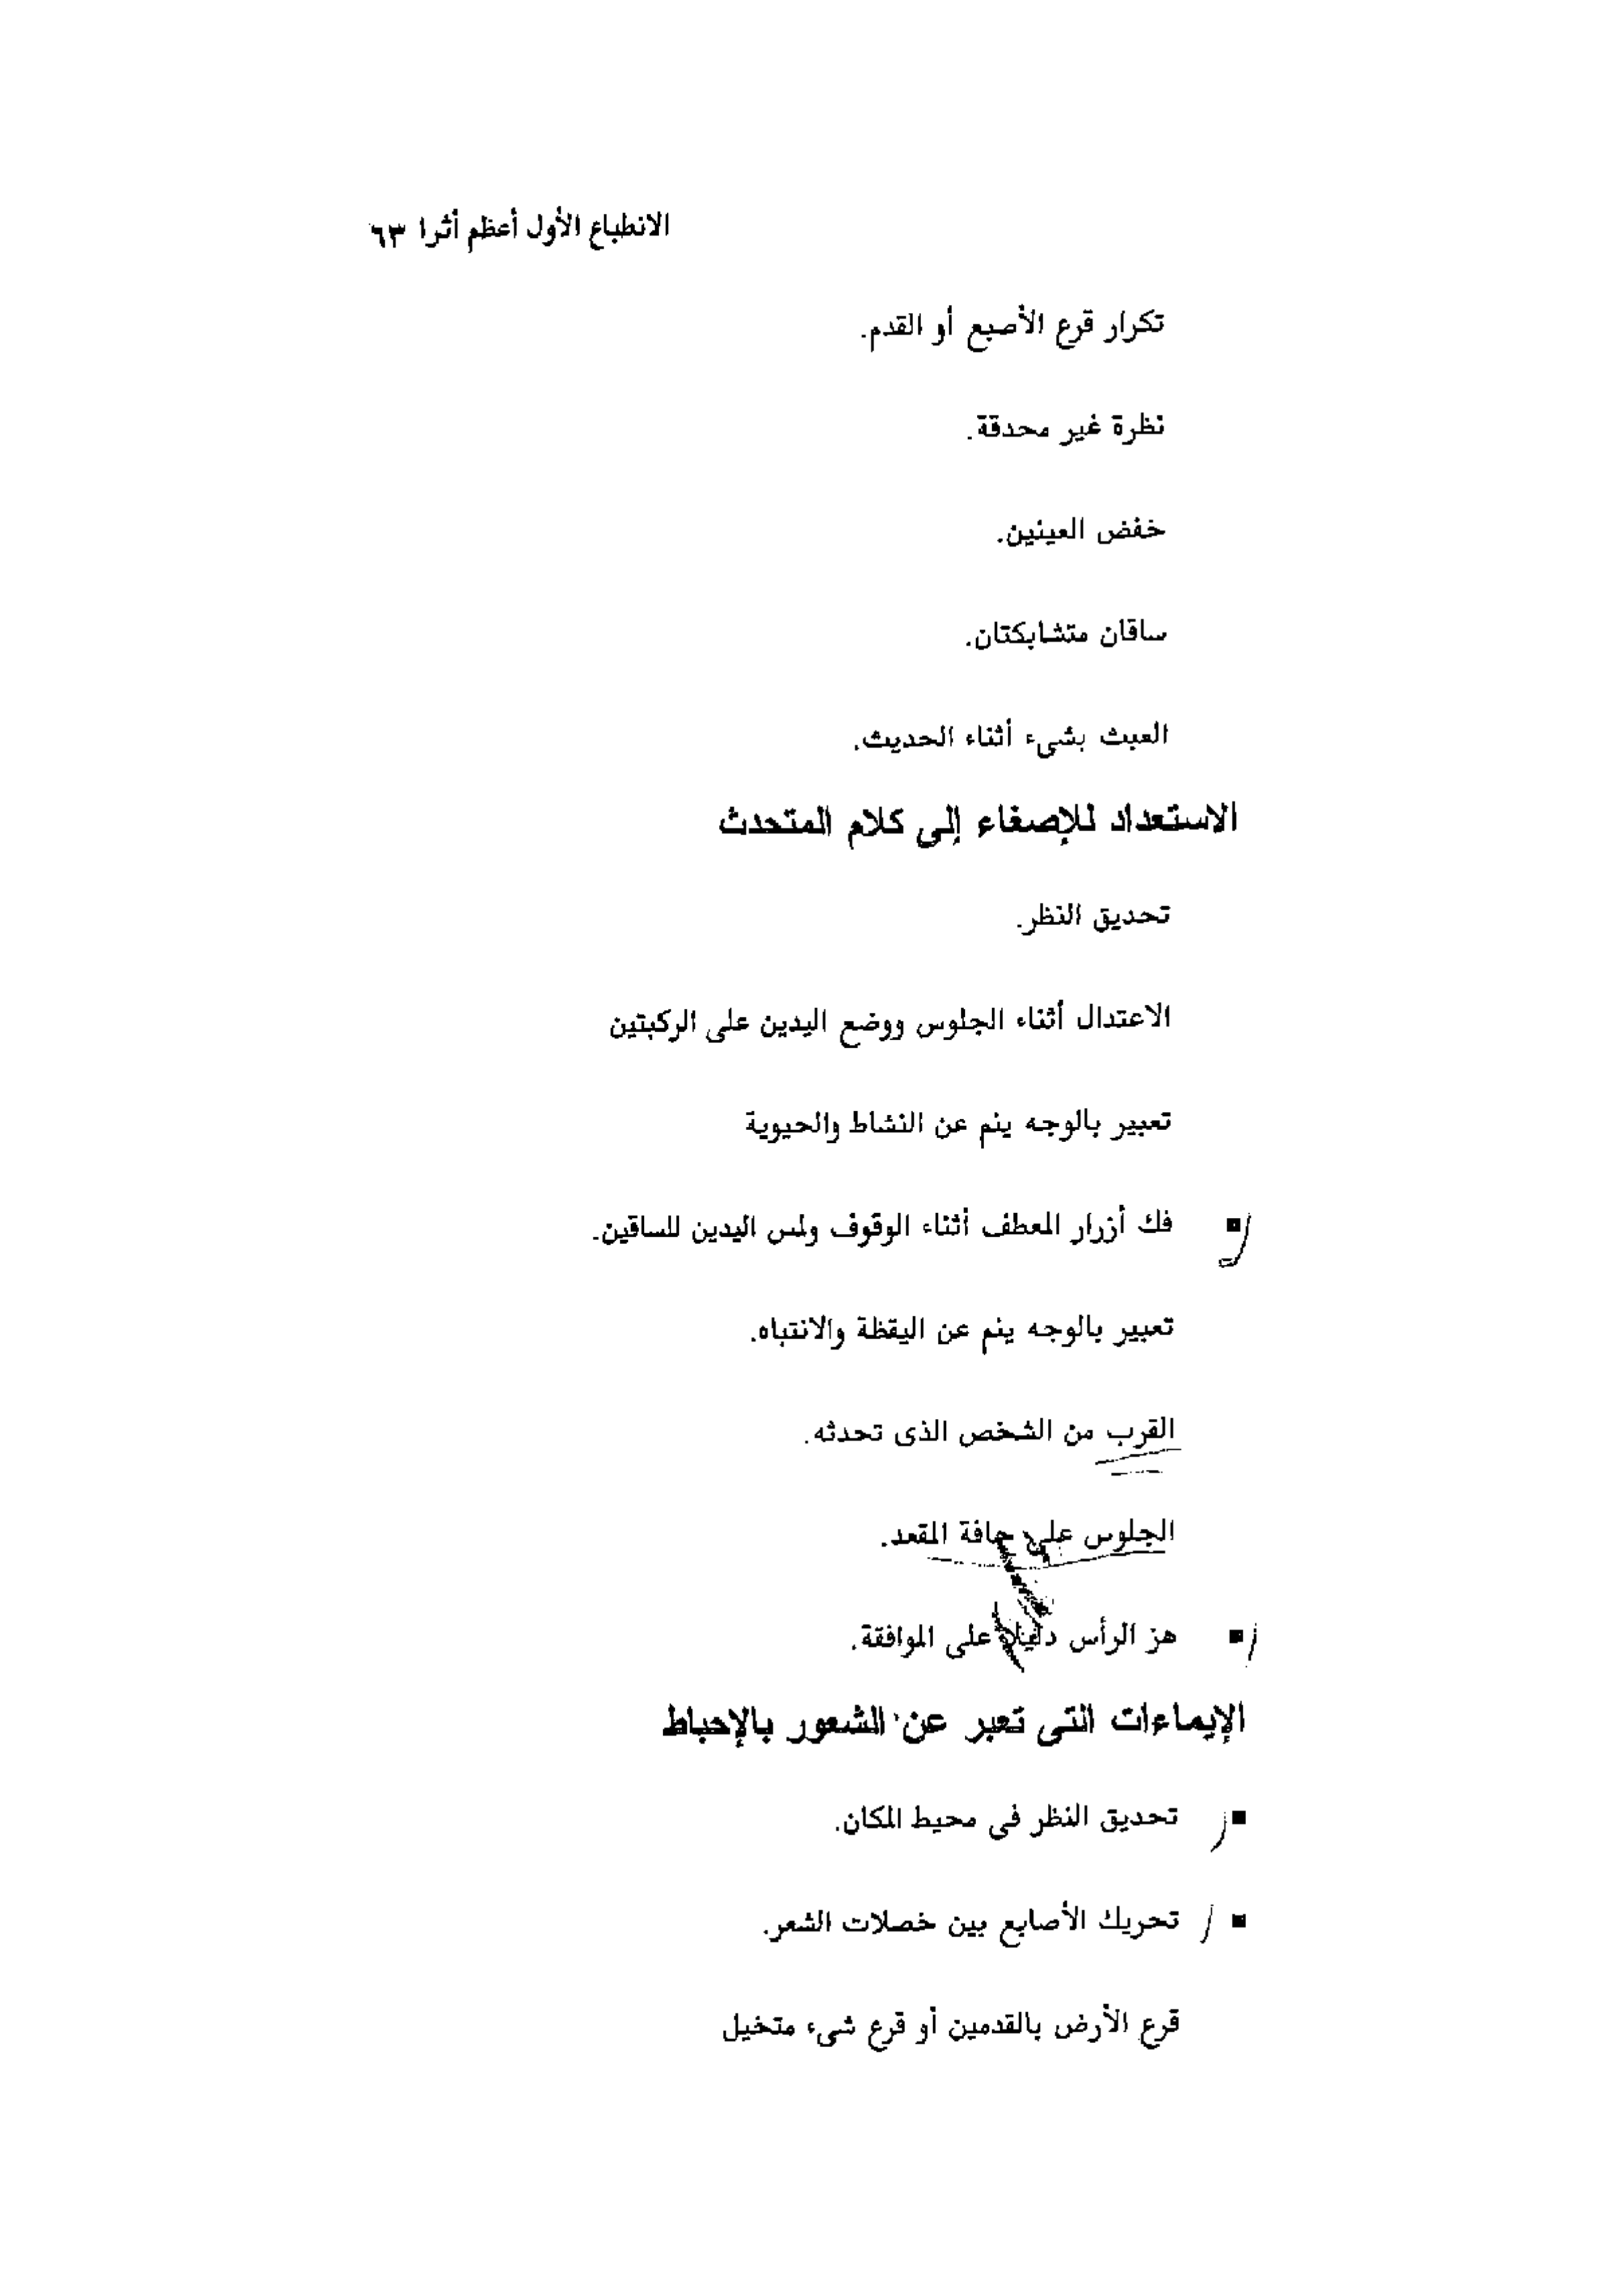 الانطباع الأول أعظم أثرا ٦٣
تكرار قرع الأصبع أو القدم.
نظرة غير محدقة.
خفض العينين.
ساقان متشابكتان.
العبث بشىء أثناء الحديث.
الاستعداد للإصغاء إلى كلام المتحدث
تحديق النظر.
الاعتدال أثناء الجلوس ووضع اليدين على الركبتين
تعبير بالوجه ينم عن النشاط والحيوية
▪ فك أزرار المعطف أثناء الوقوف ولمس اليدين للساقين.
تعبير بالوجه ينم عن اليقظة والانتباه.
القرب من الشخص الذى تحدثه.
الجلوس على حافة المقعد.
▪ هز الرأس دليلا على الموافقة.
الإيماءات التى تعبر عن الشعور بالإحباط
▪ تحديق النظر فى محيط المكان.
▪ تحريك الأصابع بين خصلات الشعر.
قرع الأرض بالقدمين أو قرع شىء متخيل